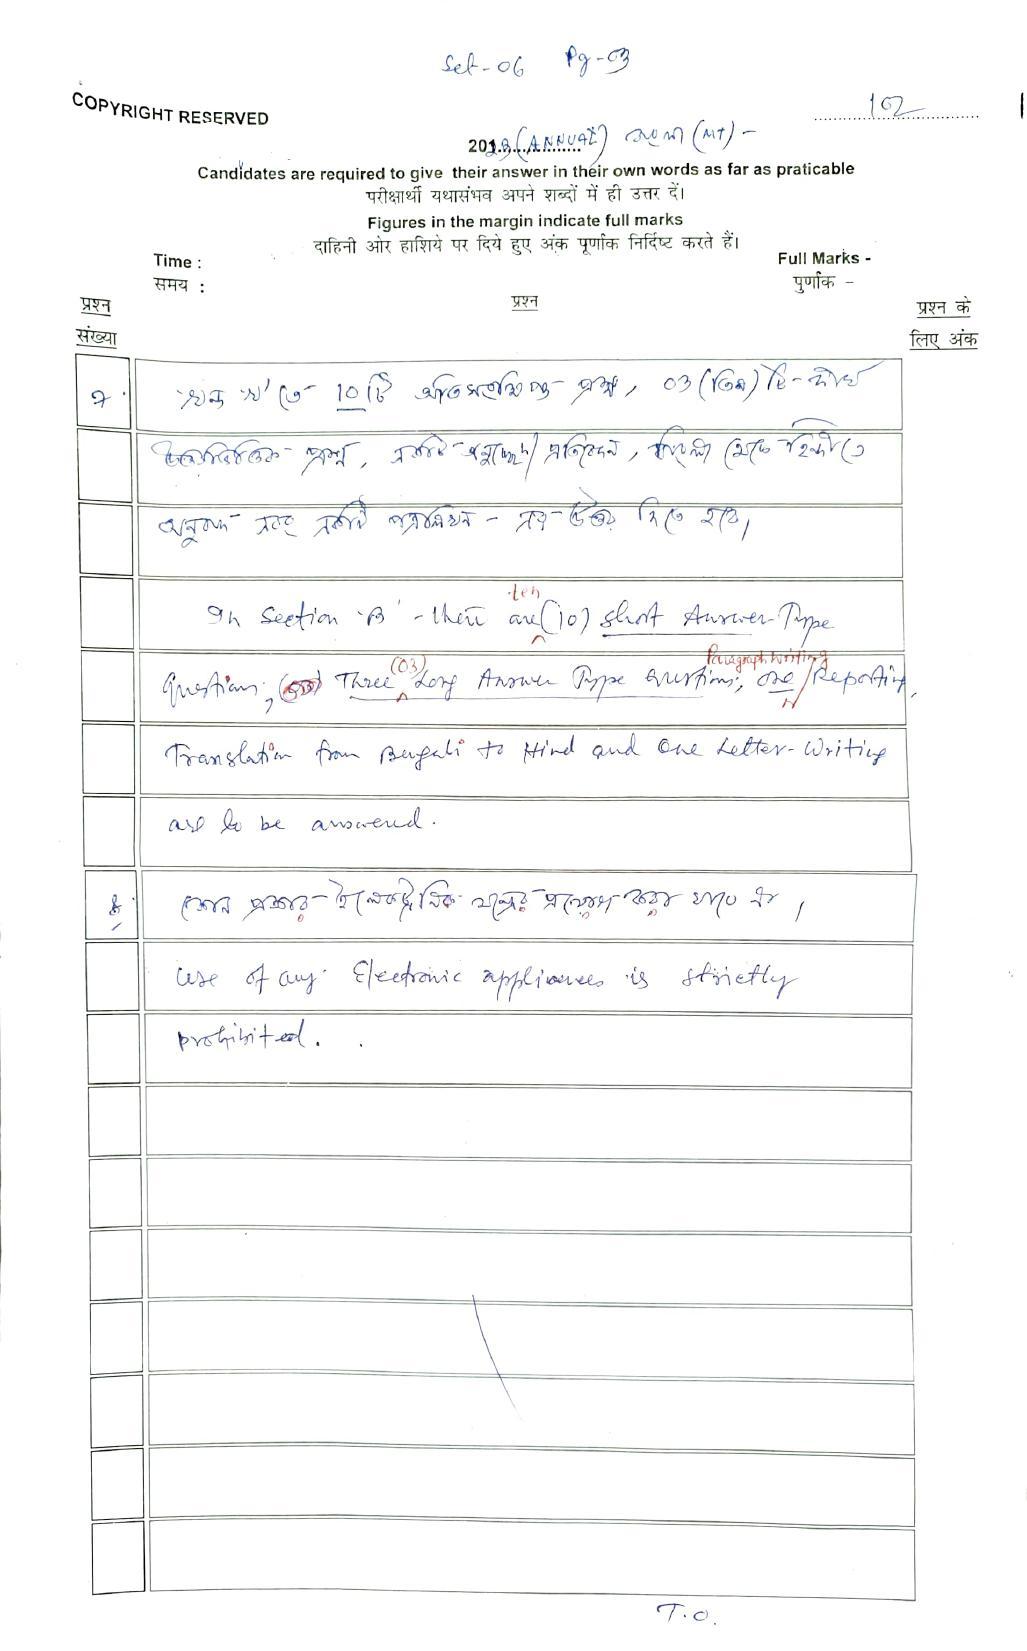 Set-06 Pg-03
COPYRIGHT RESERVED
102
2023(ANNUAL) বাংলা (MT) -
Candidates are required to give their answer in their own words as far as praticable
परीक्षार्थी यथासंभव अपने शब्दों में ही उत्तर दें।
Figures in the margin indicate full marks
दाहिनी ओर हाशिये पर दिये हुए अंक पूर्णांक निर्दिष्ट करते हैं।
Time :
Full Marks -
समय :
पुर्णांक -
प्रश्न संख्या
प्रश्न
प्रश्न के लिए अंक
৭. খন্ড 'খ' তে 10টি অতিসংক্ষিপ্ত প্রশ্ন, 03 (তিন) টি দীর্ঘ
প্রশ্ন, একটি অনুচ্ছেদ/প্রতিবেদন, বাংলা থেকে হিন্দীতে
অনুবাদ এবং একটি পত্রলিখন - এর উত্তর দিতে হবে।
In Section 'B' - there are ten (10) Short Answer Type
Questions, Three (03) Long Answer Type Questions, one Paragraph Writing/Reporting,
Translation from Bengali to Hind and One Letter-Writing
are to be answered.
৮. কোন প্রকার ইলেকট্রনিক যন্ত্রের প্রয়োগ করা যাবে না।
Use of any Electronic appliances is strictly
prohibited.
T.O.